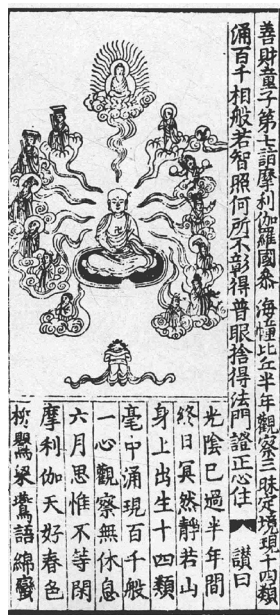 善財童子第七詣摩利伽羅國叅 海幢比丘半年觀察三昧定境現十四類
涌百千相般若智照何所不彰得普眼捨得法門證正心住 讚曰
光陰已過半年間
終日冥然靜若山
身上出生十四類
毫中涌現百千般
一心觀察無休息
六月思惟不等閑
摩利伽天好春色
鶯語綿蠻